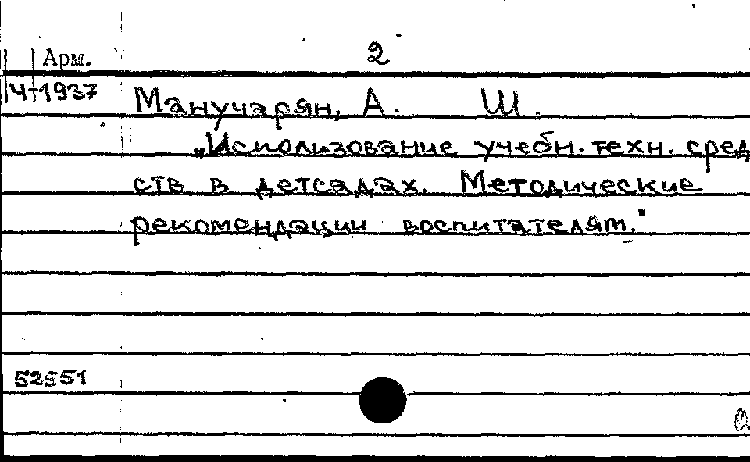 Арм. 2
Ч-1937 Манучарян, А. Ш.
„Использование учебн. техн. сред
ств в детсадах. Методические
рекомендации воспитателям."
52551